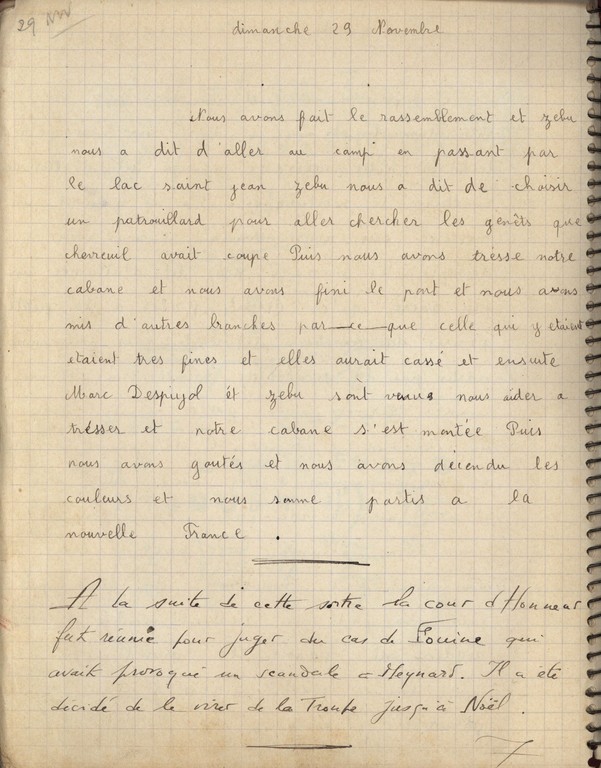 29
dimanche 29 Novembre
Nous avons fait le rassemblement et zebu
nous a dit d'aller au camp en passant par
le lac saint jean zebu nous a dit de choisir
un patrouillard pour aller chercher les genêts que
chevreuil avait coupe Puis nous avons tresse notre
cabane et nous avons fini le pont et nous avons
mis d'autres branches par-ce-que celle qui y etaient
etaient tres fines et elles aurait cassé et ensuite
Marc Despujol ét zebu sont venus nous aider a
trésser et notre cabane s'est montée Puis
nous avons goutés et nous avons décendu les
couleurs et nous somme partis a la
nouvelle France .
A la suite de cette sortie la cour d'Honneur
fut réunie pour juger du cas de Fouine qui
avait provoqué un scandale à Meynard. Il a été
décidé de le virer de la Troupe jusqu'à Noël.